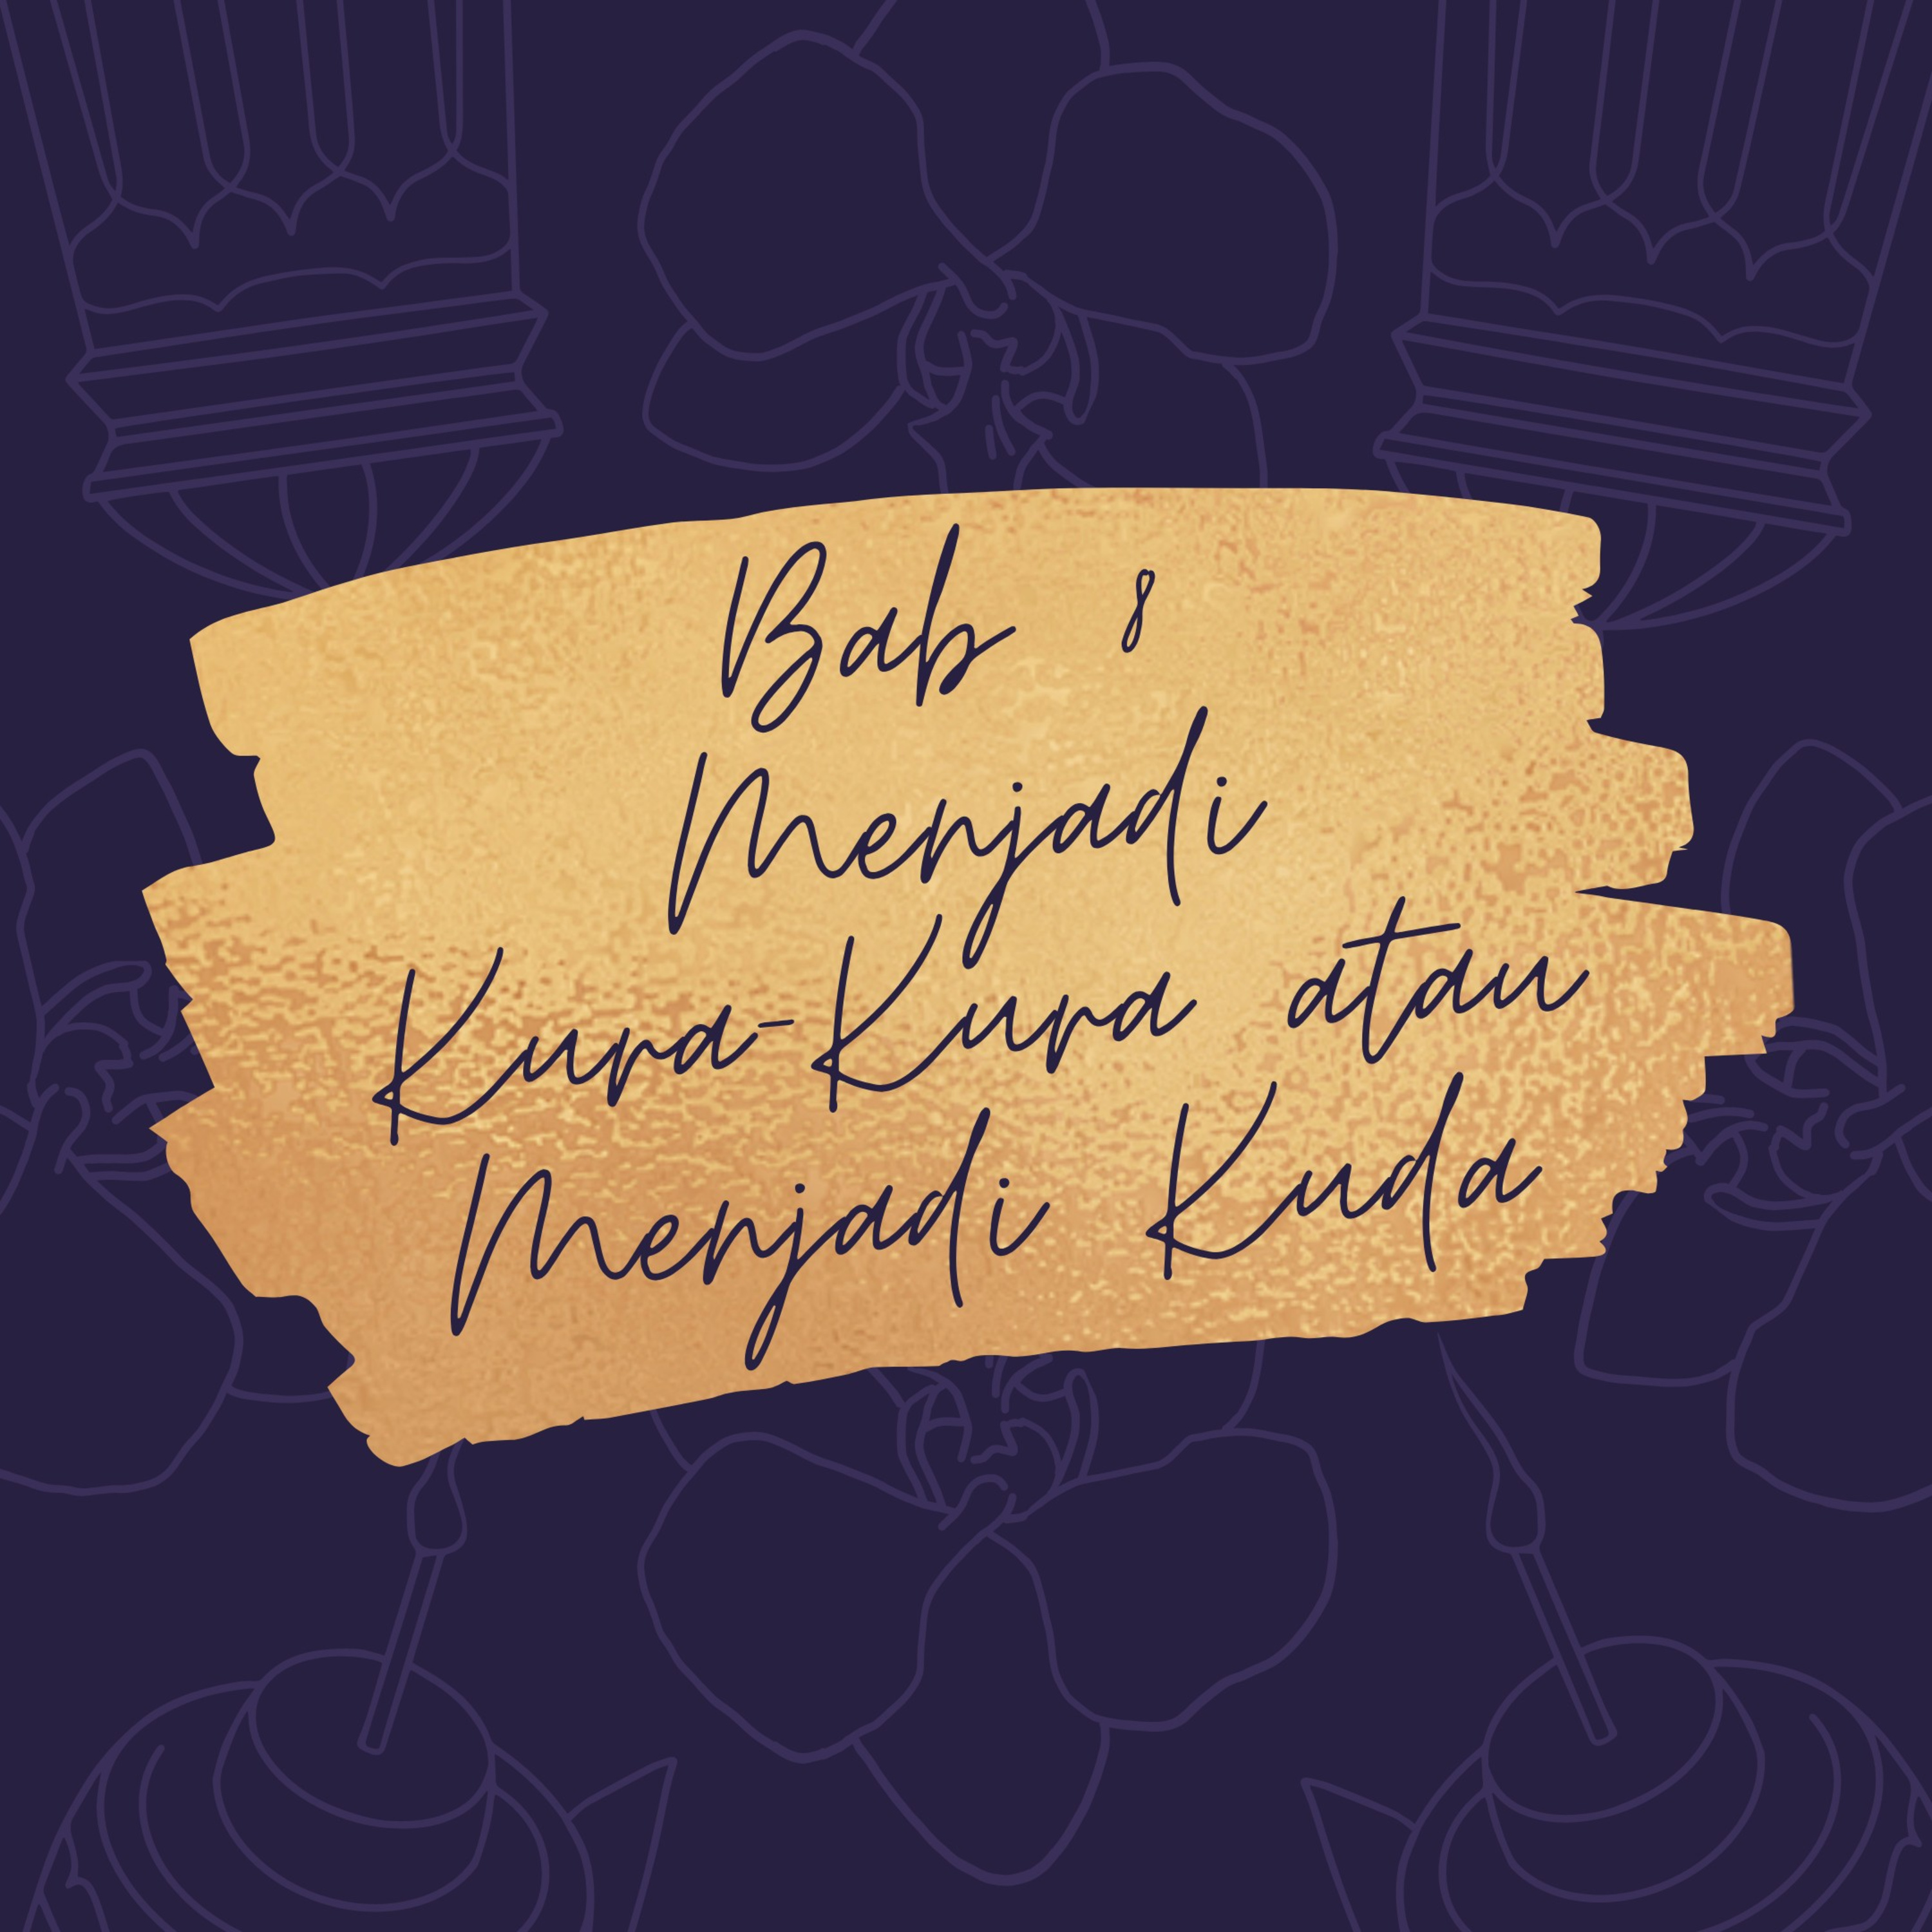 Bab 8
Menjadi
Kura-Kura atau
Menjadi Kuda